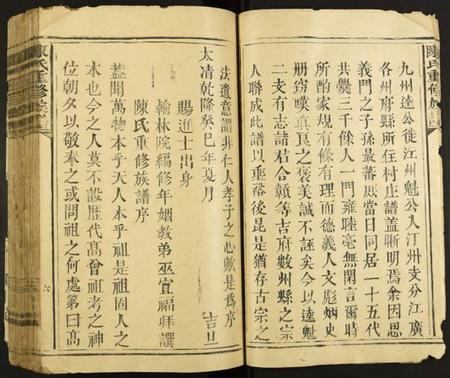 九州逵公徙江州魁公入汀州支分江廣
各州府縣所住村庄譜盖晰明焉余因思
義門之子孫最蕃厥當日同居一十五代
共爨三千餘人一門雍睦毫無閑言爾時
所酌家規有條有理而德義人文彪炳史
冊猗歟真良之褒美誠不誣矣今以逵魁
二支有志諸君合贛等吉府數州縣之宗
人聯成此譜以垂裕後昆是猶存古宗之
法遺意謂非仁人孝子之心歟是為序
太清乾隆癸巳年夏月 吉旦
賜進士出身
翰林院編修年姻教弟巫宜福拜譔
陳氏重修族譜序
蓋聞萬物本乎天人本乎祖是祖固人之
本也今之人莫不設歷代高曾祖考之神
位朝夕以敬奉之或問祖之何處第曰高
陳氏重修族
六
陳氏重修族